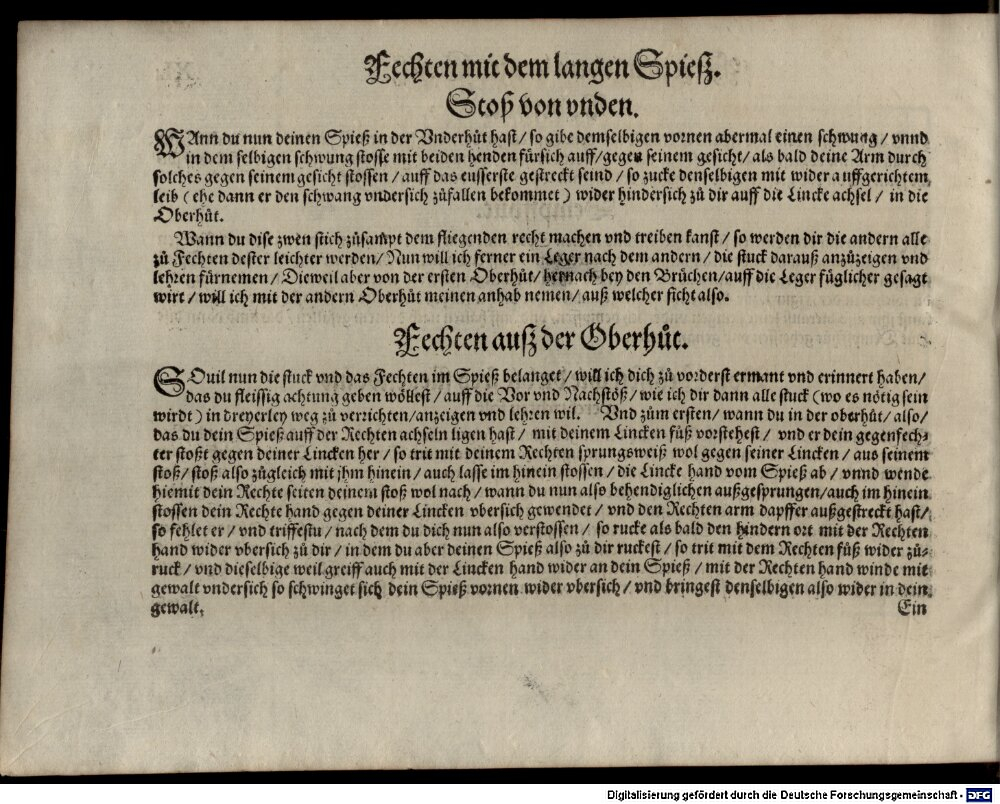 Fechten mit dem langen Spieß.
Stoß von vnden.
WAnn du nun deinen Spieß in der Vnderhůt hast / so gibe demselbigen vornen abermal einen schwung / vnnd
in dem selbigen schwung stosse mit beiden henden fürsich auff / gegen seinem gesicht / als bald deine Arm durch
solches gegen seinem gesicht stossen / auff das eusserste gestreckt seind / so zucke denselbigen mit wider auffgerichtem
leib ( ehe dann er den schwang vndersich zůfallen bekommet ) wider hindersich zů dir auff die Lincke achsel / in die
Oberhůt.
Wann du dise zwen stich zůsampt dem fliegenden recht machen vnd treiben kanst / so werden dir die andern alle
zů Fechten dester leichter werden / Nun will ich ferner ein Leger nach dem andern / die stuck darauß anzůzeigen vnd
lehren fürnemen / Dieweil aber von der ersten Oberhůt / hernach bey den Brüchen / auff die Leger füglicher gesagt
wirt / will ich mit der andern Oberhůt meinen anhab nemen / auß welcher ficht also.
Fechten auß der Oberhůt.
SOuil nun die stuck vnd das Fechten im Spieß belanget / will ich dich zů vorderst ermant vnd erinnert haben /
das du fleissig achtung geben wöllest / auff die Vor vnd Nachstöß / wie ich dir dann alle stuck ( wo es nötig sein
wirdt ) in dreyerley weg zů verrichten / anzeigen vnd lehren wil. Vnd zům ersten / wann du in der oberhůt / also /
das du dein Spieß auff der Rechten achseln ligen hast / mit deinem Lincken fůß vorstehest / vnd er dein gegenfech-
ter stoßt gegen deiner Lincken her / so trit mit deinem Rechten sprungsweiß wol gegen seiner Lincken / aus seinem
stoß / stoß also zůgleich mit jhm hinein / auch lasse im hinein stossen / die Lincke hand vom Spieß ab / vnnd wende
hiemit dein Rechte seiten deinem stoß wol nach / wann du nun also behendiglichen außgesprungen / auch im hinein
stossen dein Rechte hand gegen deiner Lincken vbersich gewendet / vnd den Rechten arm dapffer außgestreckt hast /
so fehlet er / vnd triffestu / nach dem du dich nun also verstossen / so rucke als bald den hindern ort mit der Rechten
hand wider vbersich zů dir / in dem du aber deinen Spieß also zů dir ruckest / so trit mit dem Rechten fůß wider zů-
ruck / vnd dieselbige weil greiff auch mit der Lincken hand wider an dein Spieß / mit der Rechten hand winde mit
gewalt vndersich so schwinget sich dein Spieß vornen wider vbersich / vnd bringest denselbigen also wider in dein
gewalt.
Ein
Digitalisierung gefördert durch die Deutsche Forschungsgemeinschaft - DFG